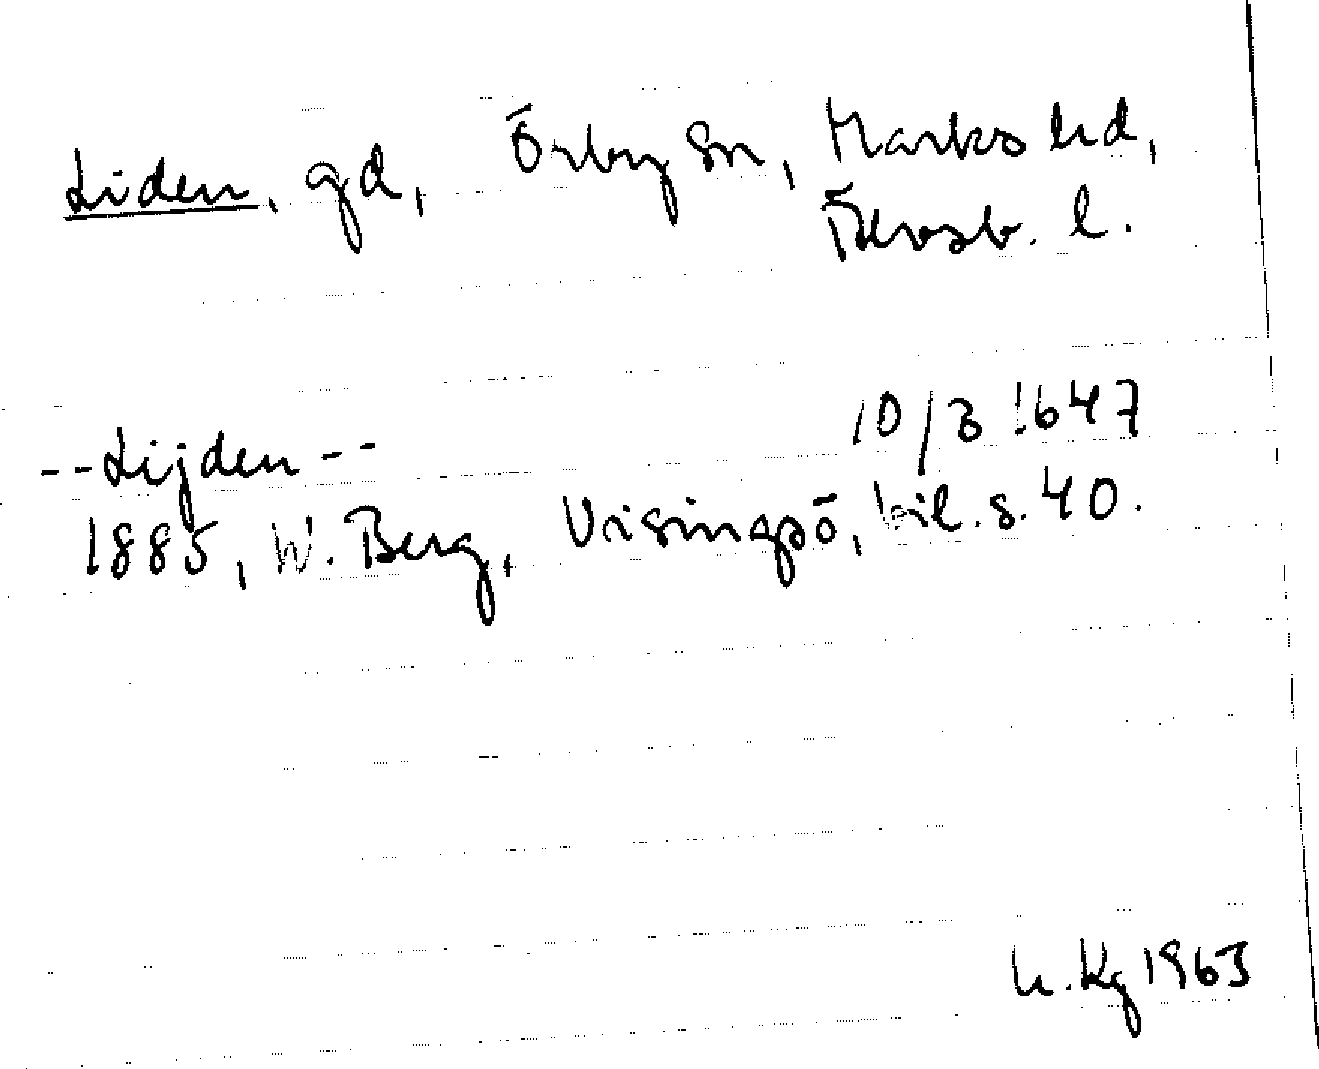 Liden, gd, Örby sn, Marks hd,
Älvsb. l.
--Lijden-- 10/3 1647
1885, W. Berg, Visingsö, bil. s. 40.
Kg 1963